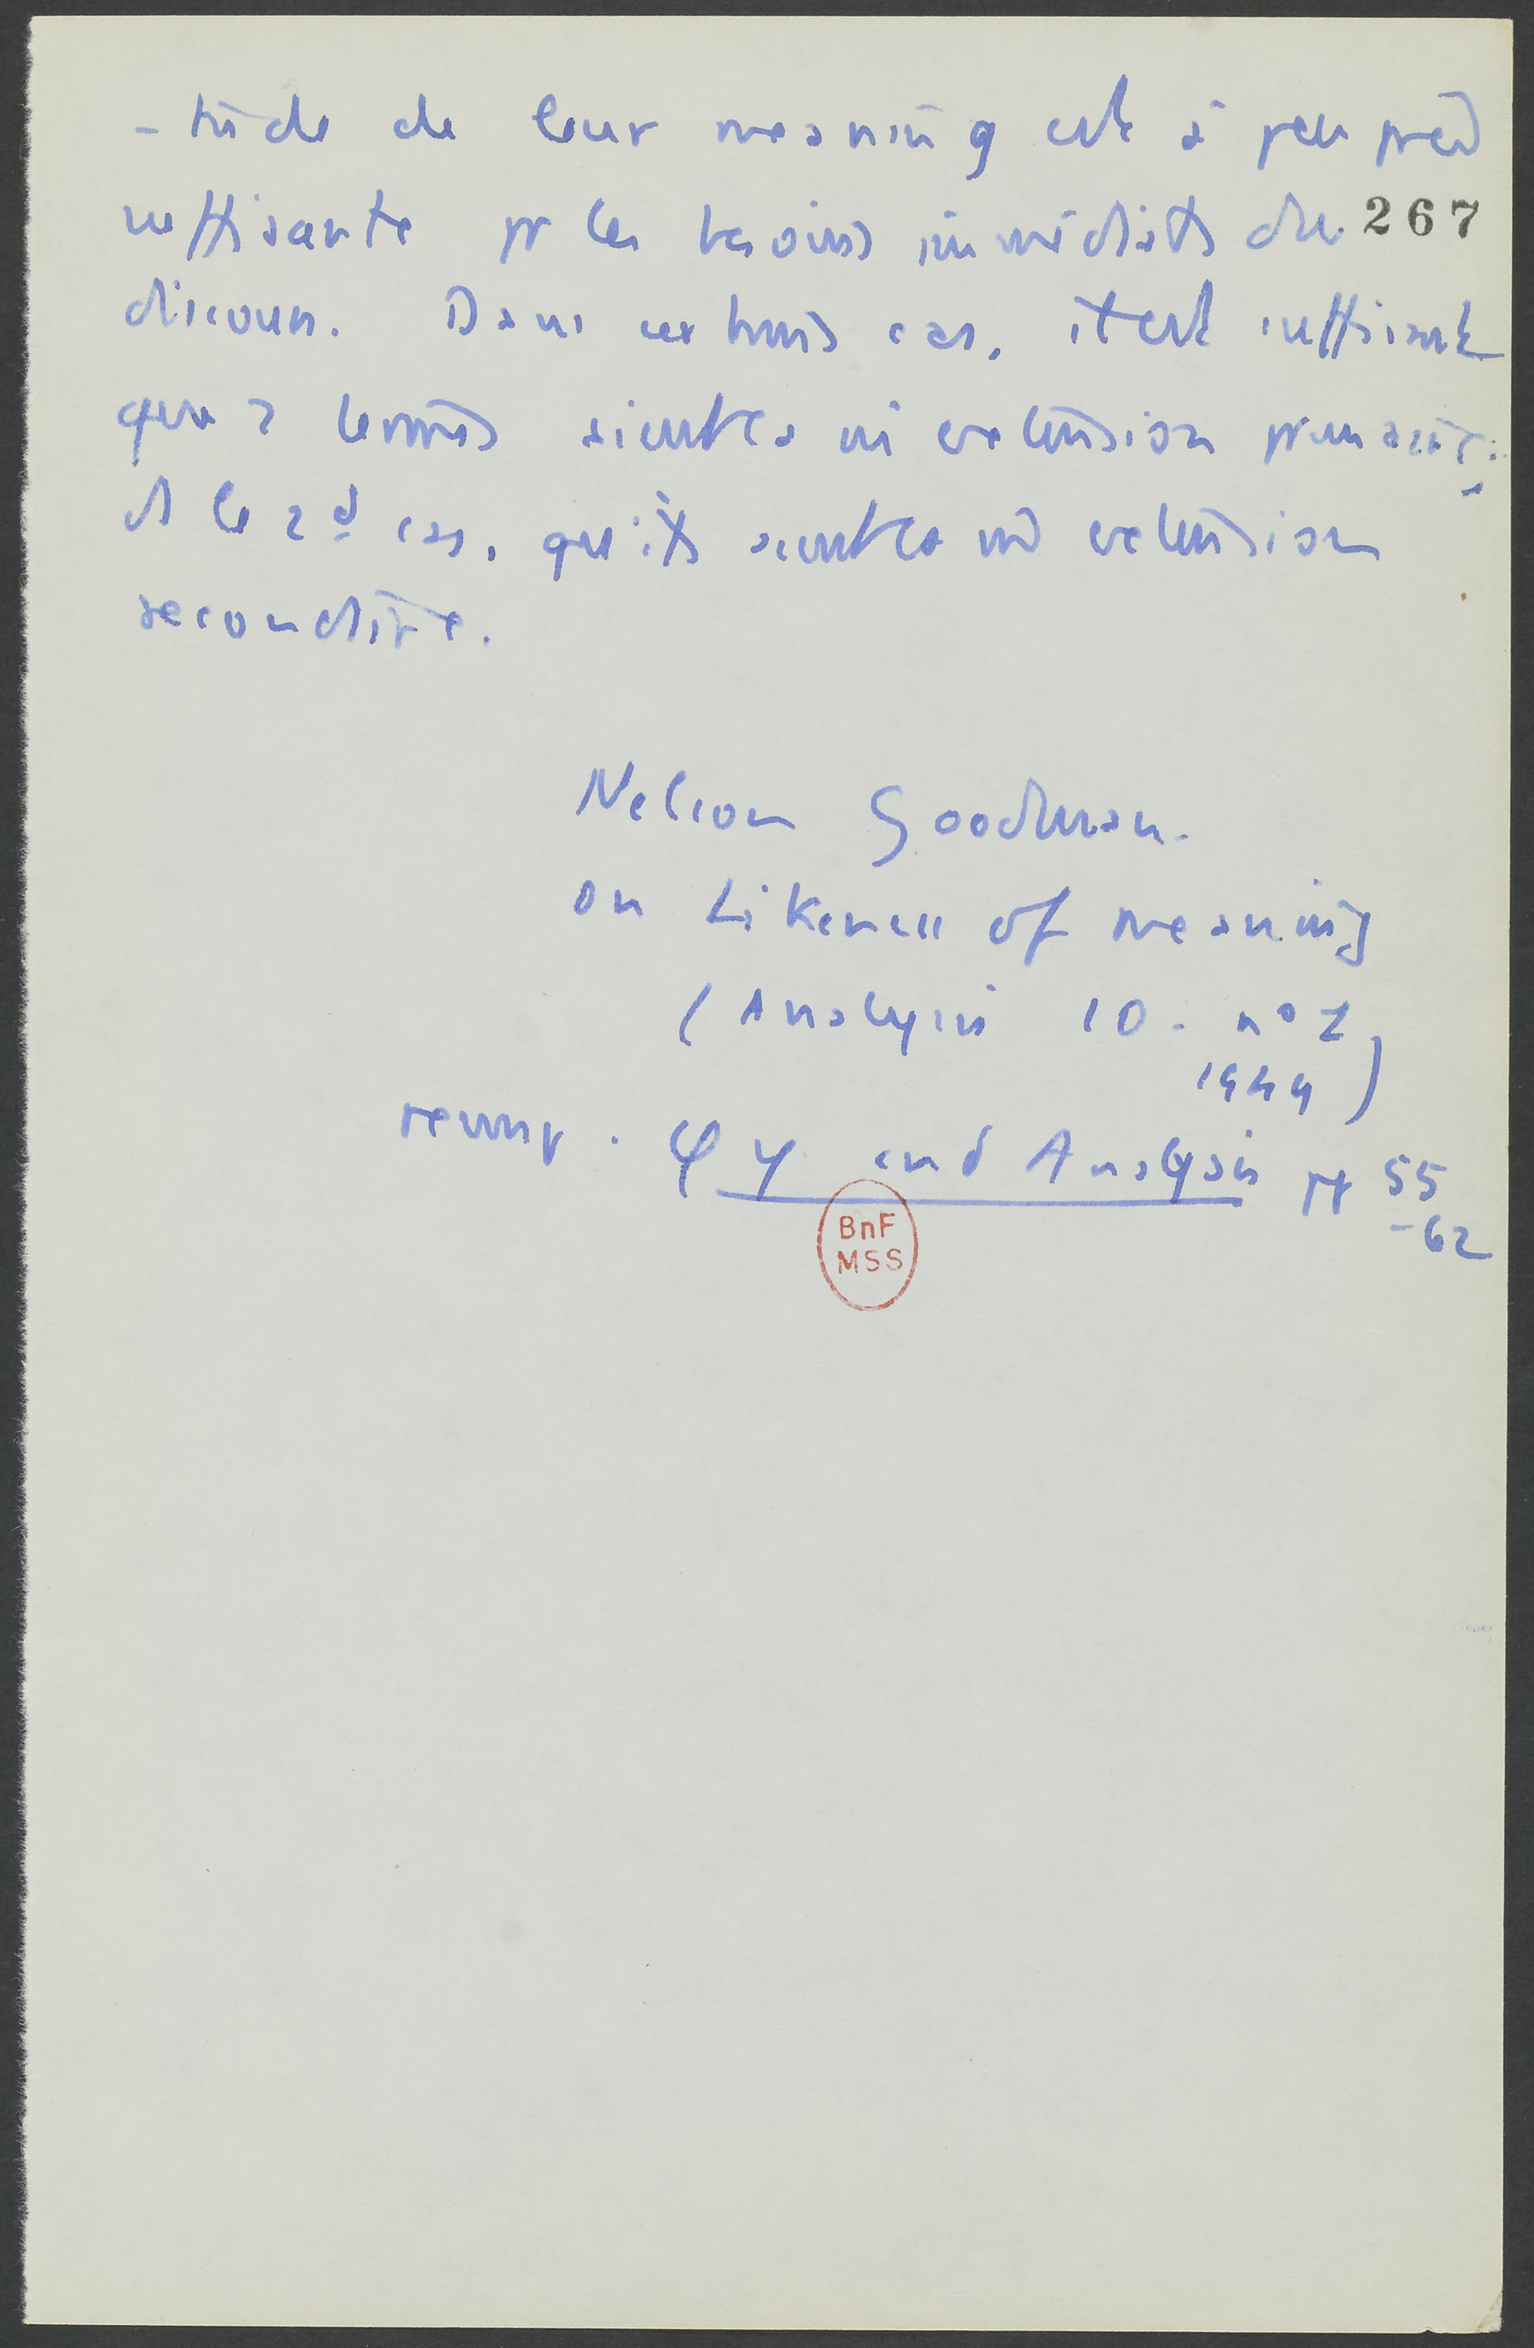 -tude de leur meaning est à peu près
suffisante pr les besoins immédiats du 267
discours. Dans certains cas, il est suffisant
que 2 termes aient la m extension primaire ;
ds le 2d cas, qu'ils aient la m extension
secondaire.
Nelson Goodman.
on Likeness of meaning
(Analysis 10. no 1
1949)
réimpr. φ y and Analysis pp 55
-62
BnF
MSS